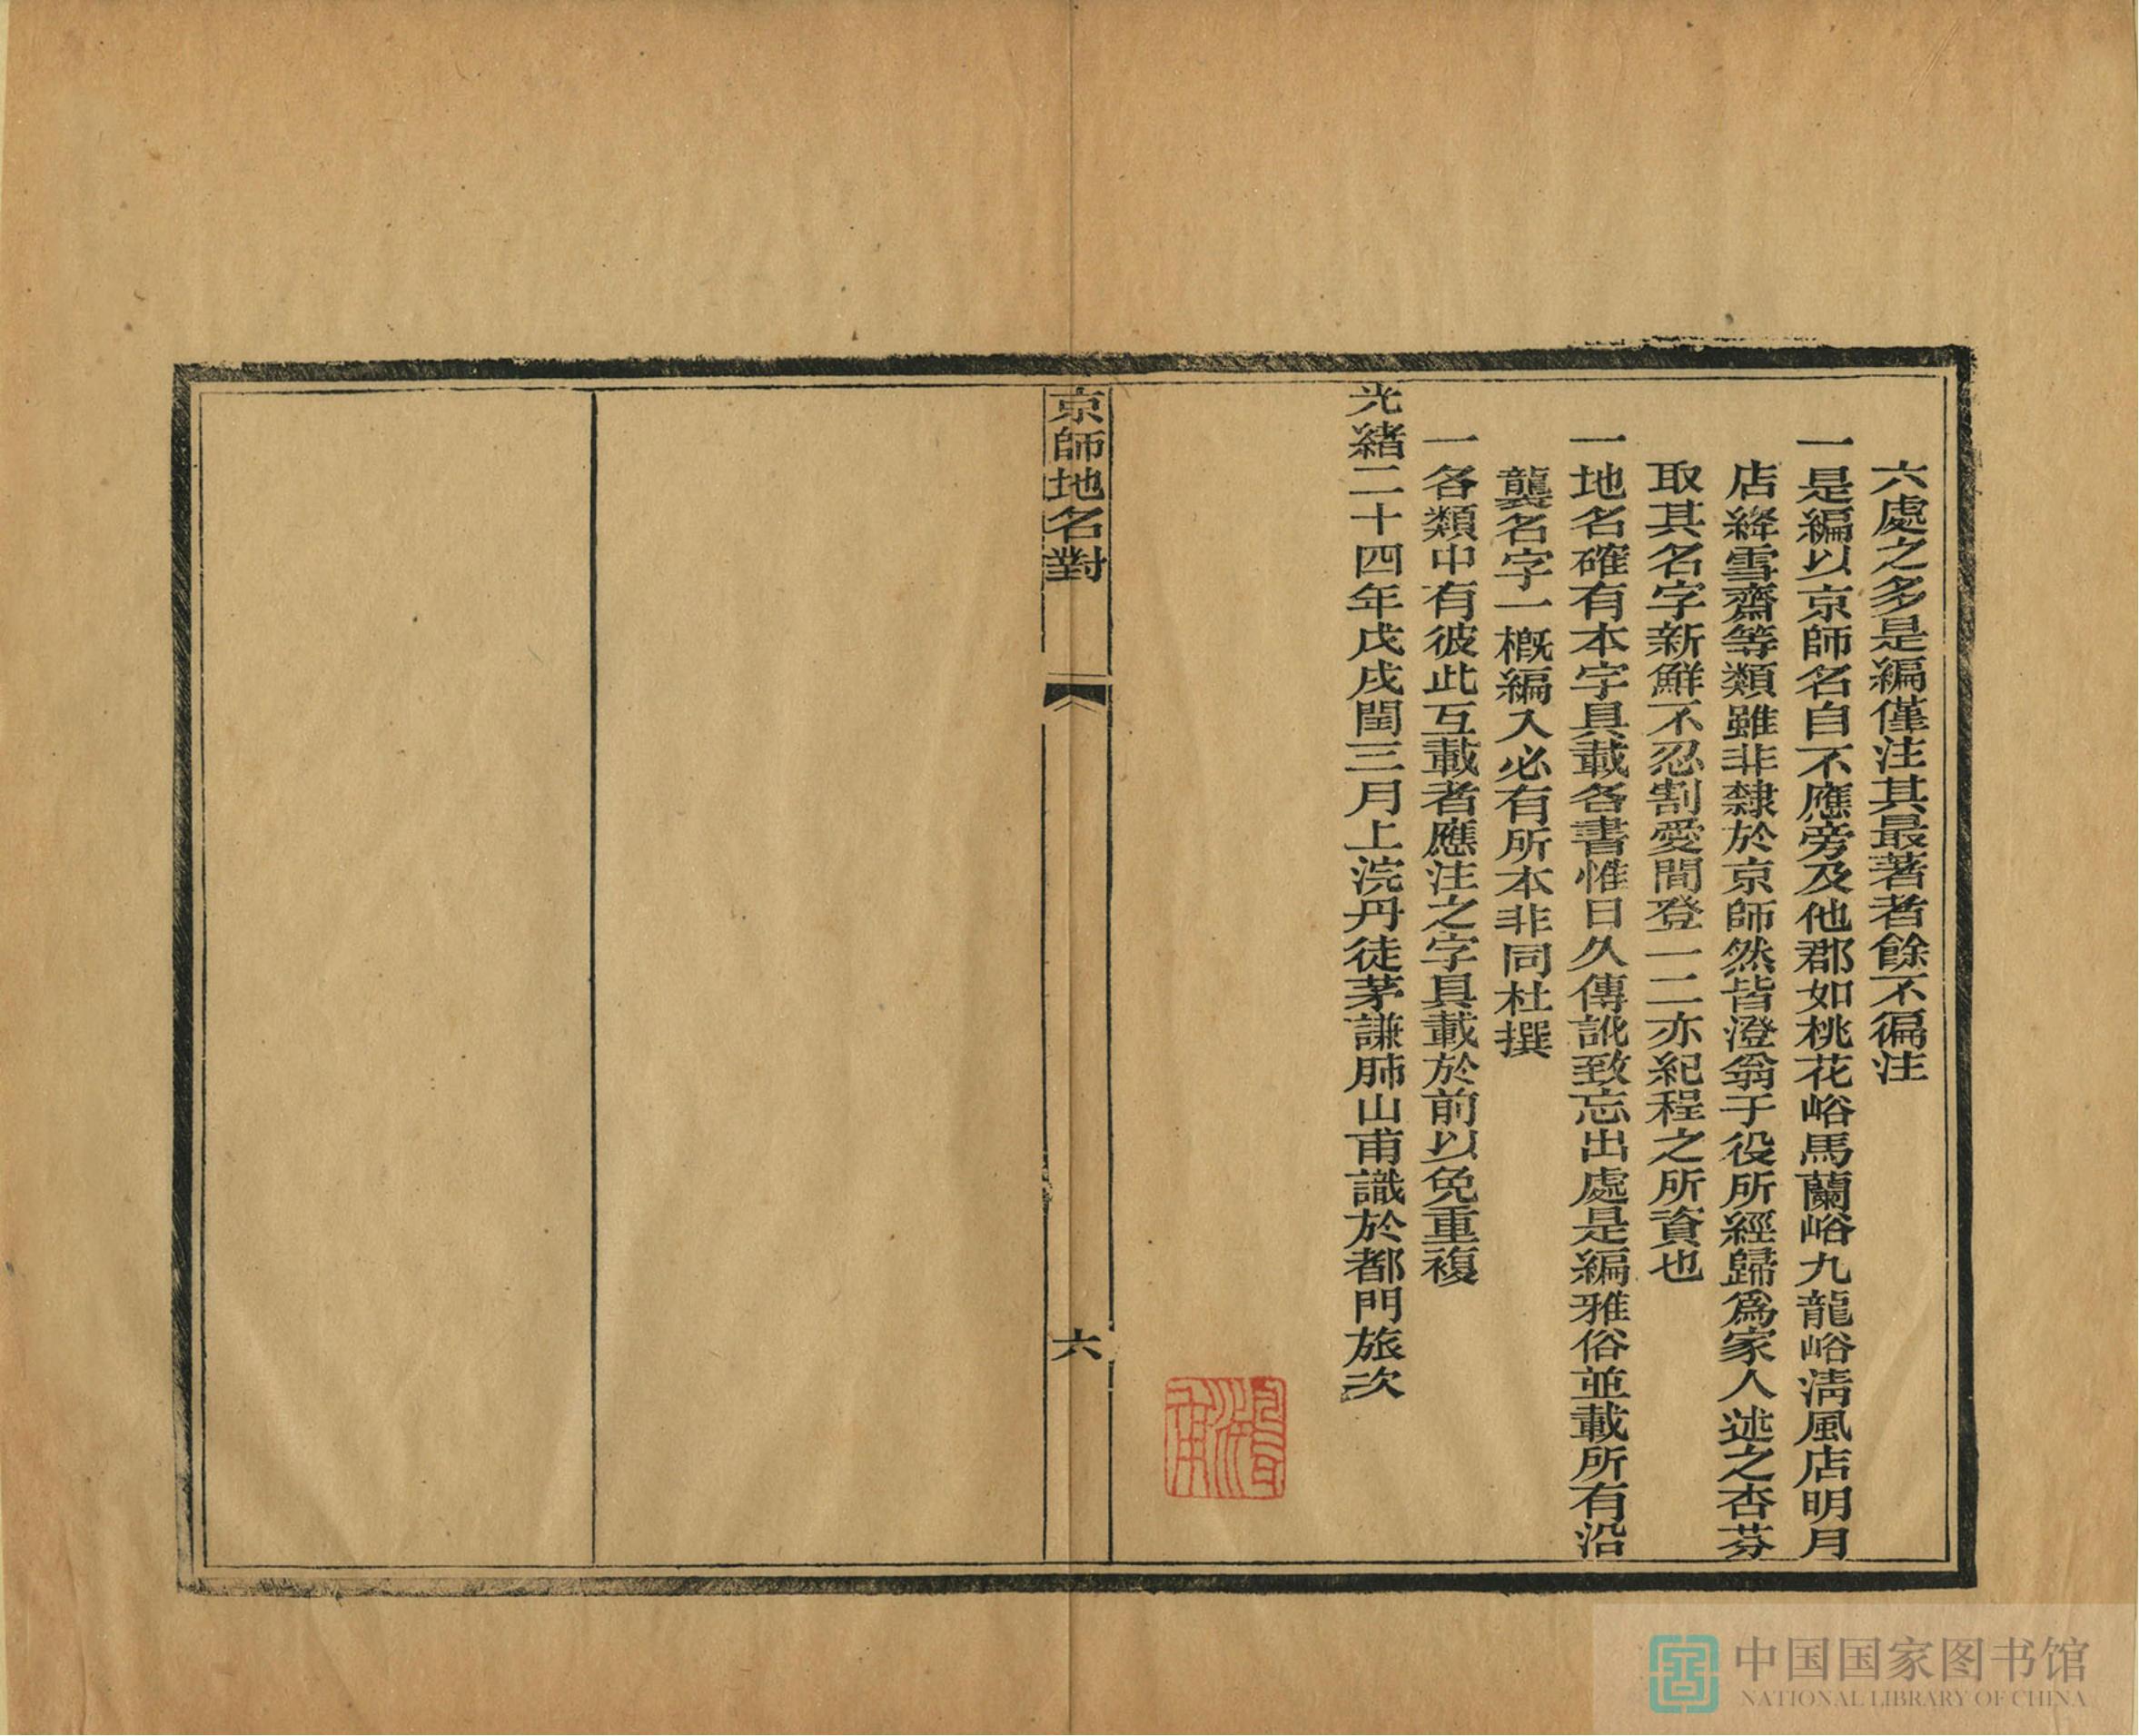 六處之多是編僅注其最著者餘不徧注
一是編以京師名自不應旁及他郡如桃花峪馬蘭峪九龍峪淸風店明月
店絳雪齋等類雖非隸於京師然皆澄翁于役所經歸爲家人述之杏芬
取其名字新鮮不忍割愛間登一二亦紀程之所資也
一地名確有本字具載各書惟日久傳訛致忘出處是編雅俗並載所有沿
襲名字一槪編入必有所本非同杜撰
一各類中有彼此互載者應注之字具載於前以免重複
光緒二十四年戊戌閏三月上浣丹徒茅謙肺山甫識於都門旅次
京師地名對
六
中国国家图书馆
NATIONAL LIBRARY OF CHINA